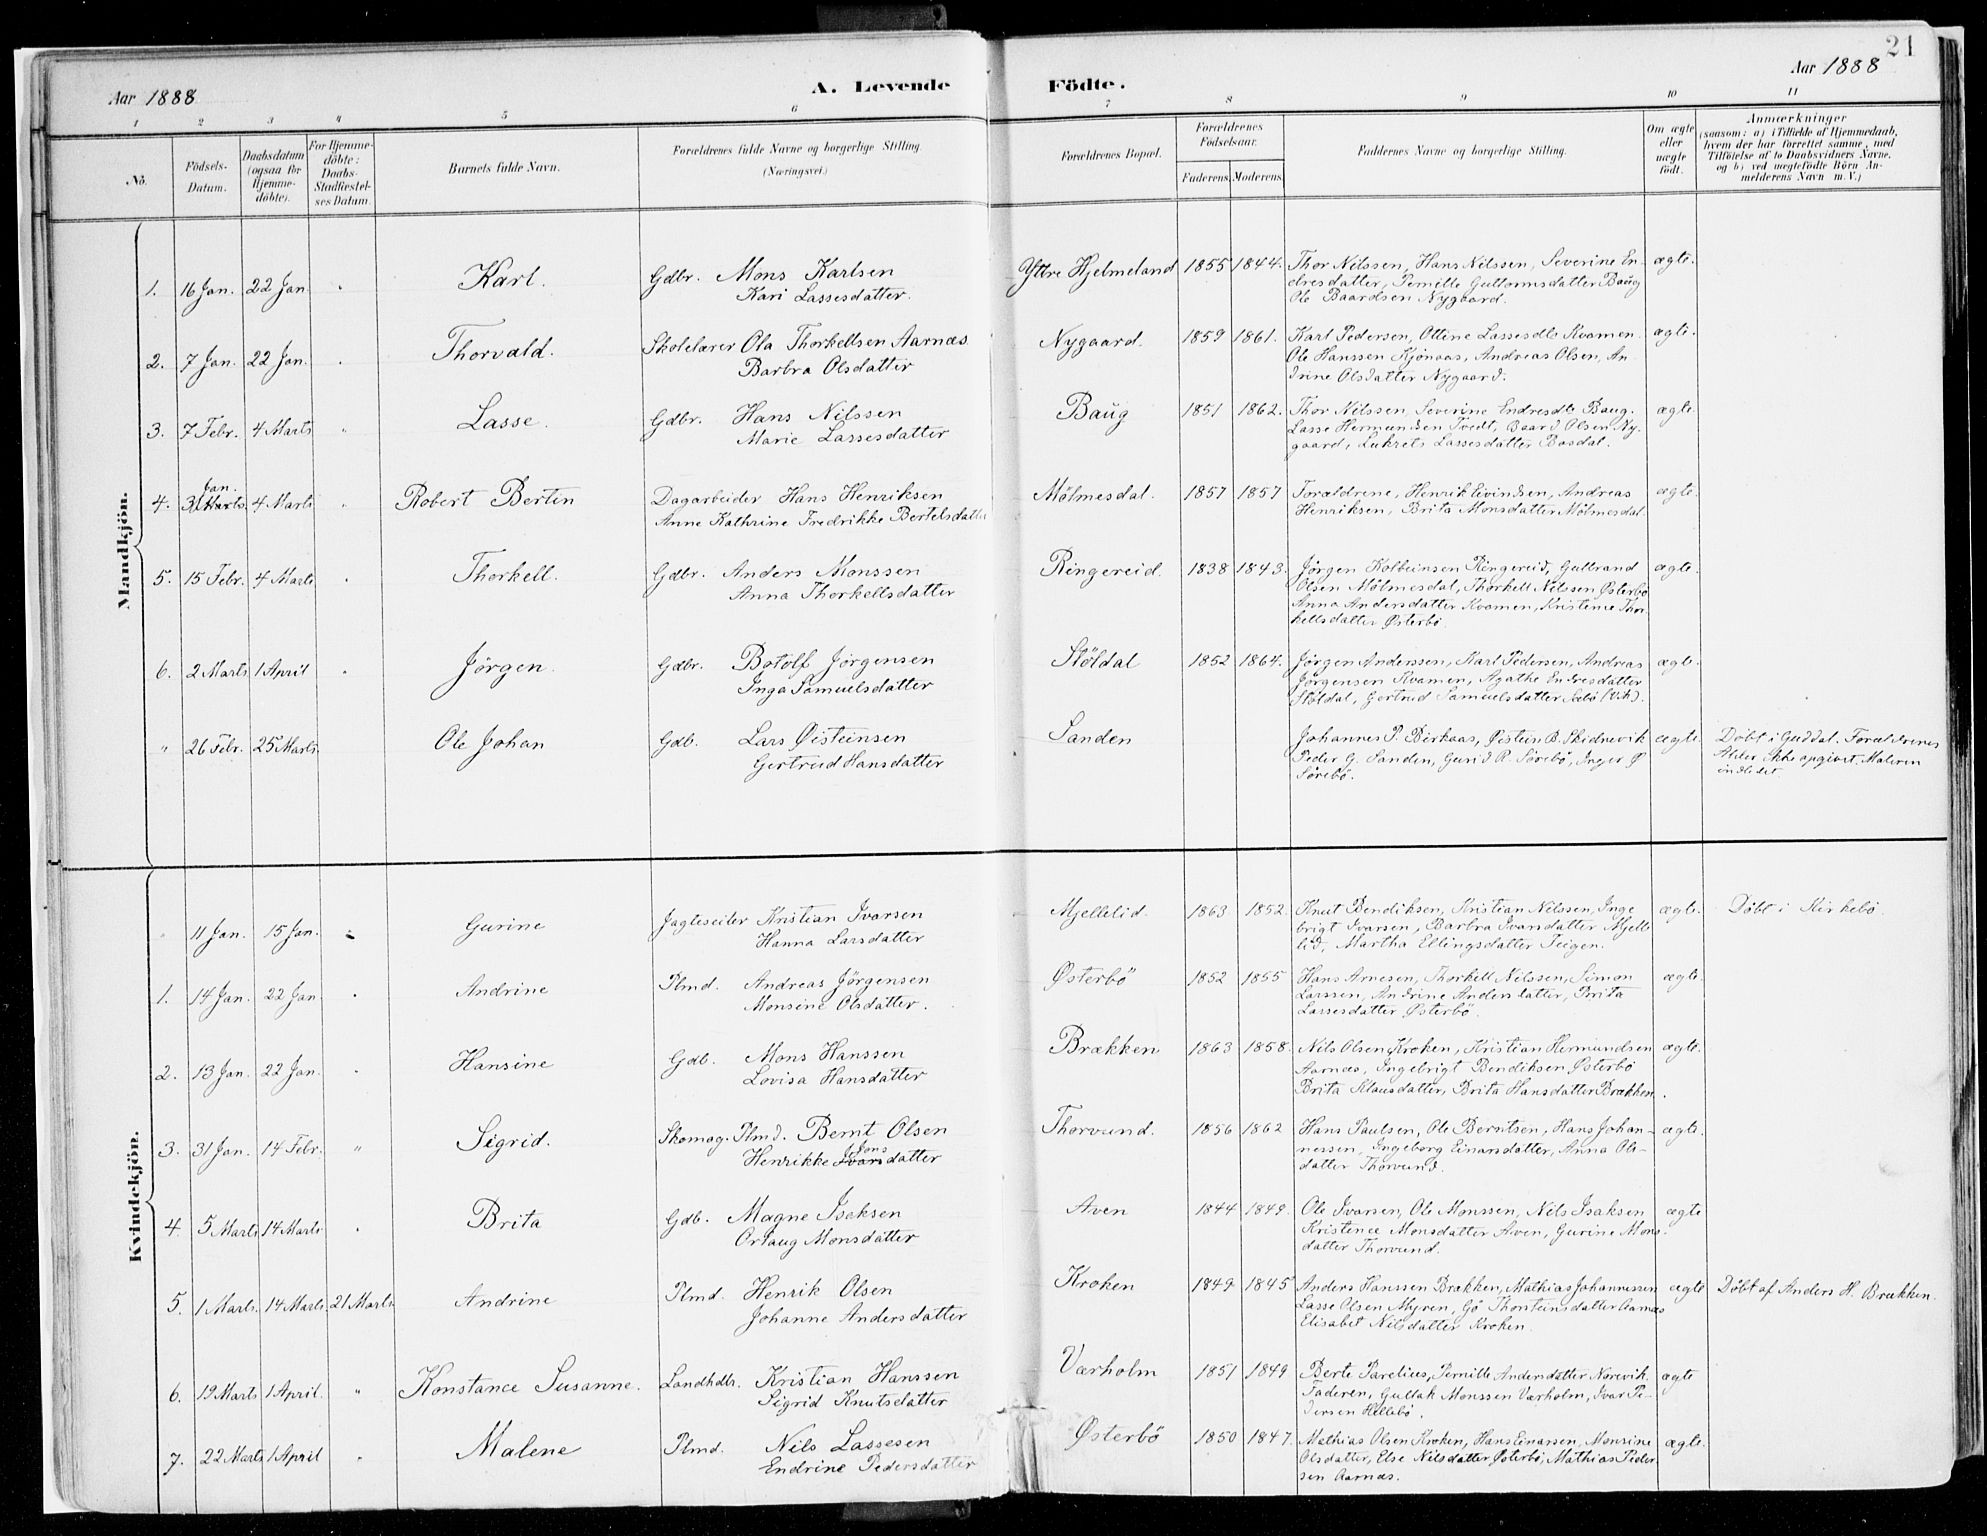 21
Aar 1888
A. Levende Födte.
Aar 1888
1 2 3 4 5 6 7 8 9 10 11
No.
Födsels-Datum.
Daabsdatum (ogsaa for Hjemme-döbte).
For Hjemme-döbte: Daabs-Stadfæstel-ses Datum.
Barnets fulde Navn.
Forældrenes fulde Navne og borgerlige Stilling.
(Næringsvei.)
Forældrenes Bopæl.
Forældrenes Födselsaar.
Faderens. Moderens.
Faddernes Navne og borgerlige Stilling.
Om ægte eller uægte födt.
Anmærkninger
(saasom: a) i Tilfælde af Hjemmedaab, hvem der har forrettet samme, med Tilföielse af to Daabsvidners Navne, og b) ved uægtefödte Börn An-melderens Navn m. V.)
Mandkjön.
1. 16 Jan. 22 Jan. " Karl. Gdbr. Mons Karlsen
Kari Lassesdatter.
Yttre Hjelmeland 1855 1844. Thor Nilssen, Hans Nilssen, Severine En-
dresdatter, Pernille Guttormsdatter Baug
Ole Baardsen Nygaard.
ægte.
2. 7 Jan. 22 Jan. " Thorvald. Skolelærer Ola Thorkellsen Aarnæs
Barbra Olsdatter
Nygaard. 1859 1861. Karl Pedersen, Ottine Lassesdtr Kvamen
Ole Hanssen Kjönaas, Andreas Olsen, An
drine Olsdatter Nygaard.
ægte.
3. 7 Febr. 4 Marts " Lasse. Gdbr. Hans Nilssen
Marie Lassesdatter
Baug 1851 1862. Thor Nilssen, Severine Endresdtr Baug.
Lasse Hermundsen Tredt, Baard Olsen Ny-
gaard, Lukrets Lassesdatter Basdal.
ægte.
4. 31 Jan. 4 Marts " Robert Bertin Dagarbeider Hans Henriksen
Anne Kathrine Fredrikke Bertelsdatter
Mölmesdal. 1857 1857 Forældrene, Henrik Eivindsen, Andreas
Henriksen, Brita Monsdatter Mölmesdal.
ægte.
5. 15 Febr. 4 Marts " Thorkell. Gdbr. Anders Monssen
Anna Thorkellsdatter
Ringereid. 1838 1843. Jörgen Kolbeinsen Ringereid, Gulbrand
Olsen Mölmesdal, Thorkell Nilssen Østerbö
Anna Andersdatter Kvamen, Kristine Thor
kellsdatter Østerbö.
ægte.
6. 2 Marts 1 April " Jörgen. Gdbr. Botolf Jörgensen
Inga Samuelsdatter
Stöldal 1852 1864. Jörgen Anderssen, Karl Pedersen, Andreas
Jörgensen Kvamen, Agathe Endresdatter
Stöldal, Gertrud Samuelsdatter Sæbö (Vik).
ægte.
" 26 Febr. 25 Marts. Ole Johan Gdb. Lars Øisteinsen
Gertrud Hansdatter
Sanden Johannes P. Birkaas, Øistein B. Skidnevik
Peder G. Sanden, Gurid R. Sörebö, Inger Ø
Sörebö.
ægte. Döbt i Guddal. Forældrenes
Alder ikke opgivet. Moderen
indledet.
Kvindekjön.
" 11 Jan. 15 Jan. " Gurine Jagteseiler Kristian Ivarsen
Hanna Larsdatter
Mjellelid. 1863 1852. Knut Bendiksen, Kristian Nilssen, Inge
brigt Ivarsen, Barbra Ivarsdatter Mjelle
lid, Martha Ellingsdatter Teigen.
ægte. Döbt i Kirkebö.
1. 14 Jan. 22 Jan. " Andrine Plmd. Andreas Jörgensen
Monsine Olsdatter.
Østerbö 1852 1855 Hans Arnesen, Thorkell Nilssen, Simon
Larssen, Andrine Andersdatter, Brita
Lassesdatter Østerbö.
ægte.
2. 13 Jan. 22 Jan. " Hansine Gdb. Mons Hanssen
Lovisa Hansdatter
Brækken 1863 1858. Nils Olsen Kroken, Kristian Hermundsen
Aarnæs, Ingebrigt Bendiksen Østerbö
Brita Klausdatter, Brita Hansdatter Brækken.
ægte.
3. 31 Jan. 14 Febr. " Sigrid. Skomag. Plmd. Bernt Olsen
Henrikke Jonsdatter
Thorvund. 1856 1862 Hans Paulsen, Ole Berntsen, Hans Johan-
nessen, Ingeborg Einarsdatter, Anna Ols-
datter Thorvund.
ægte.
4. 5 Marts 14 Marts " Brita Gdb. Magne Iseksen
Orlaug Monsdatter
Aven 1844 1849. Ole Ivarsen, Ole Monssen, Nils Isaksen
Kristence Monsdatter Aven, Gurine Mons
datter Thorvund.
ægte
5. 1 Marts. 14 Marts. 21 Marts. Andrine Plmd. Henrik Olsen
Johanne Andersdatter
Kroken 1849 1845 Anders Hanssen Brækken, Mathias Johannessen
Lasse Olsen Myren, Gö Thorsteinsdatter Aarnæs
Elisabet Nilsdatter Kroken.
ægte Döbt af Anders H. Brækken.
6. 19 Marts 1 April. " Konstance Susanne. Landhdlr. Kristian Hanssen
Sigrid Knutsdatter
Værholm 1851 1849 Berte Parelius, Pernille Andersdatter Norevik
Faderen, Gullak Monssen Værholm, Ivar Pe-
dersen Hellebö.
ægte
7. 22 Marts 1 April " Malene Plmd. Nils Lassesen
Endrine Pedersdatter
Østerbö 1850 1847. Mathias Olsen Kroken, Hans Einarsen, Monsine
Olsdatter, Else Nilsdatter Østerbö, Mathias Peder
sen Aarnæs.
ægte.